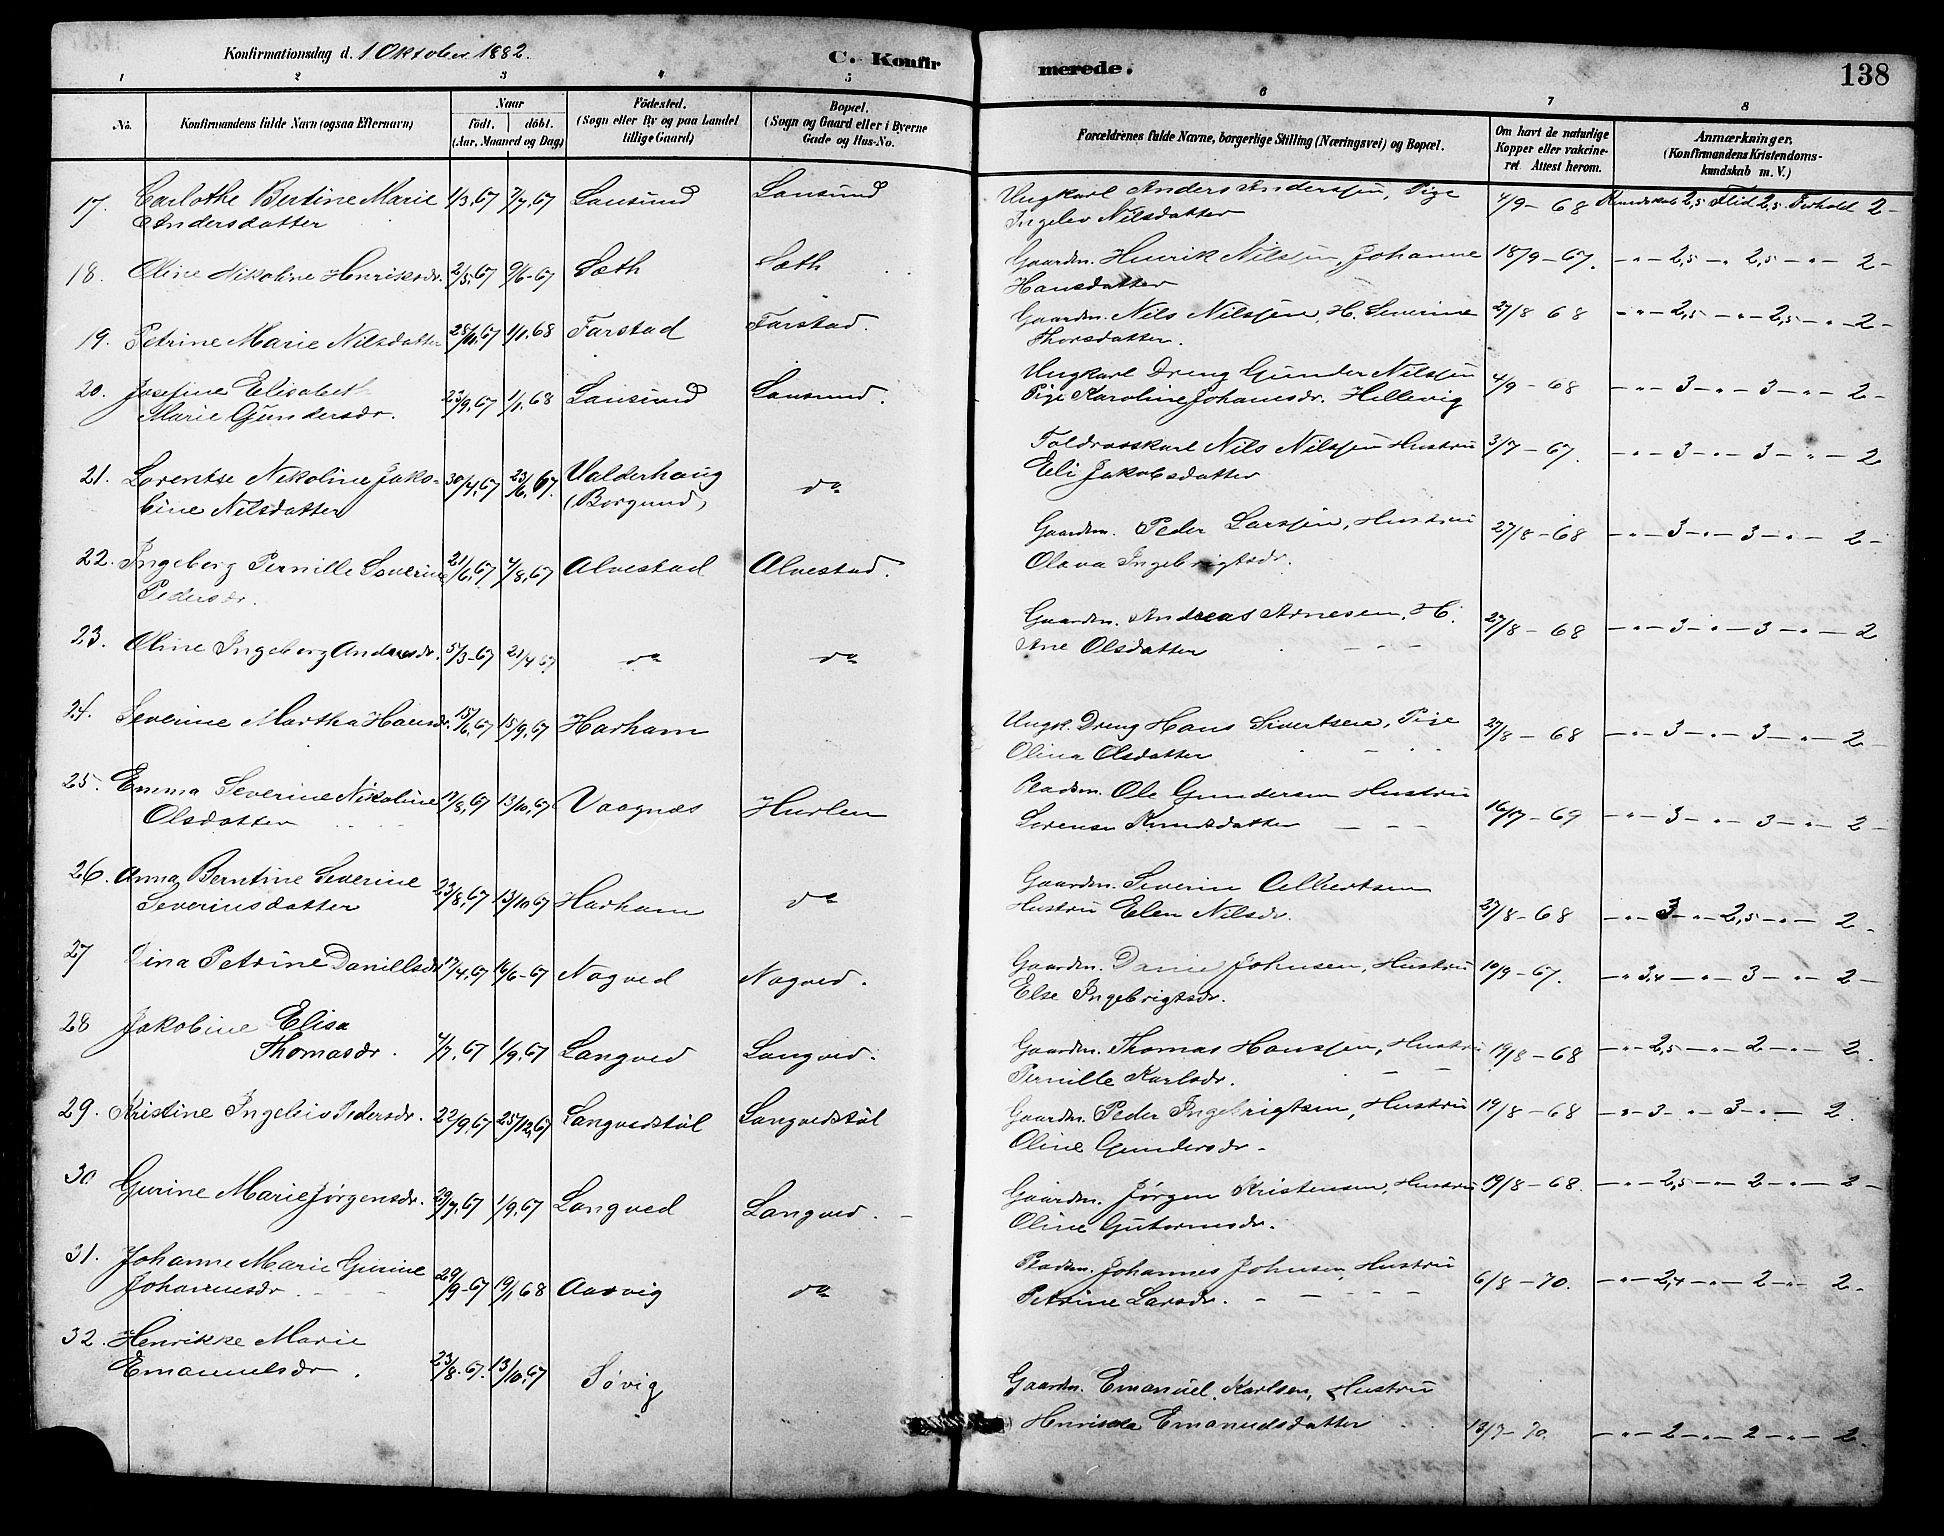 Konfirmationsdag d. 1 Oktober 1882.
C. Konfirmerede.
138
1 2 3 4 5 6 7 8
No.
Konfirmandens fulde Navn (ogsaa Efternavn)
Naar
födt. döbt.
(Aar, Maaned og Dag)
Födested.
(Sogn eller By og paa Landet
tillige Gaard)
Bopæl.
(Sogn og Gaard eller i Byerne
Gade og Hus-No.
Forældrenes fulde Navne, borgerlige Stilling (Næringsvei) og Bopæl.
Om havt de naturlige
Kopper eller vakcine-
ret. Attest herom.
Anmærkninger.
(Konfirmandens Kristendoms-
kundskab m. V.)
17. Carlothe Bertine Marie 1/3.67 7/7.67 Lausund Lausund Ungkarl Anders Anderssen, Pige 4/9-68 Kundskab 2,5 Flid 2,5 Forhold 2-
Andersdatter Ingelev Nilsdatter
18. Oline Nikoline Henriksdr. 2/5.67 9/6-67 Sæth Sæth Gaardm. Henrik Nilssen, Johanne 18/9-67. -"- 2,5 -"- 2,5 -"- 2-
Hansdatter
19. Petrine Marie Nilsdatter 28/10.67 1/1.68 Farstad Farstad. Gaardm. Nils Nilssen, H. Severine 27/8 68 -"- 2,5 -"- 2,5 -"- 2-
Thorsdatter.
20. Josefine Elisabeth 23/9.67 1/1.68 Lausund Lausund. Ungkarl Dreng Gunder Nilssen 4/9-68 -"- 3 -"- 3 -"- 2-
Marie Gundersdr. Pige Karoline Johansdr. Hellevig
21. Lorentse Nikoline Jako- 30/4.67 23/6.67. Valderhaug do Foldrasskarl Nils Nilssen Hustru 3/7-67. -"- 3 -"- 3 -"- 2
bine Nilsdatter (Borgund) Eli Jakobsdatter
22. Ingeborg Pernille Severine 21/6.67 4/8.67 Alvestad Alvestad. Gaardm. Peder Larssen, Hustru 27/8-68 -"- 3 -"- 3 -"- 2-
Pedersdr. Olava Ingebrigtsdr.
23. Oline Ingeborg Andreasdr. 5/3-67 21/4.67 do do Gaardm. Andreas Arnesen, H. 27/8-68 -"- 3 -"- 3 -"- 2
Ane Olsdatter
24. Severine Martha Hansdr. 15/6.67 15/9.67 Harham Ungk. Dreng Hans Sivertsen, Pige 27/8-68 -"- 3 -"- 3 -"- 2-
Olina Olsdatter
25. Emma Severine Nikoline 17/8.67 13/10.67 Vaagnæs Hurlen Pladsm. Ole Gundersen Hustru 16/7-69 -"- 3 -"- 3 -"- 2-
Olsdatter Knudsdatter
26. Anna Berntine Severine 23/8.67 13/10.67 Harham do Gaardm. Severin Albertsen 27/8-68 -"- 3 -"- 2,5 -"- 2-
Severinsdatter Hustru Elen Nilsdr.
27 Dina Petrine Danillsdr. 17/4.67 16/6-67 Nogved Nogved. Gaardm. Daniel Johnsen, Hustru 10/9-67. -"- 3,4 -"- 3 -"- 2-
Else Ingebrigtsdr.
28 Jakobine Elisa 4/7.67 1/9.67 Langved Langved. Gaardm. Thomas Hanssen, Hustru 19/8-68 -"- 2,5 -"- 2 -"- 2.
Thomasdr. Pernille Karlsdr.
29. Kristine Ingeleis Pedersdr. 22/9.67 25/12.67 Langvedstöl Langvedstöl Gaardm. Peder Ingebrigtsen, Hustru 19/8-68 -"- 3 -"- 3 -"- 2.
Oline Gundersdr.
30 Gurine Marie Jörgensdr. 29/7.67 1/9.67 Langved Langved. Gaardm. Jörgen Kristensen, Hustru 19/8-68. -"- 2,5 -"- 2 -"- 2-
Oline Gutormsdr.
31. Johanne Marie Gurine 29/9-67 19/1.68 Aarvig do Pladsm. Johannes Johnsen, Hustru 6/8-70. -"- 2,4 -"- 2 -"- 2-
Johannesdr. Petrine Larsdr.
32. Henrikke Marie 23/8.67. 13/10.67 Sövig Gaardm. Emanuel Karlsen, Hustru 13/7-70. -"- 2 -"- 2 -"- 2.
Emanuelsdr. Emanuelsdatter